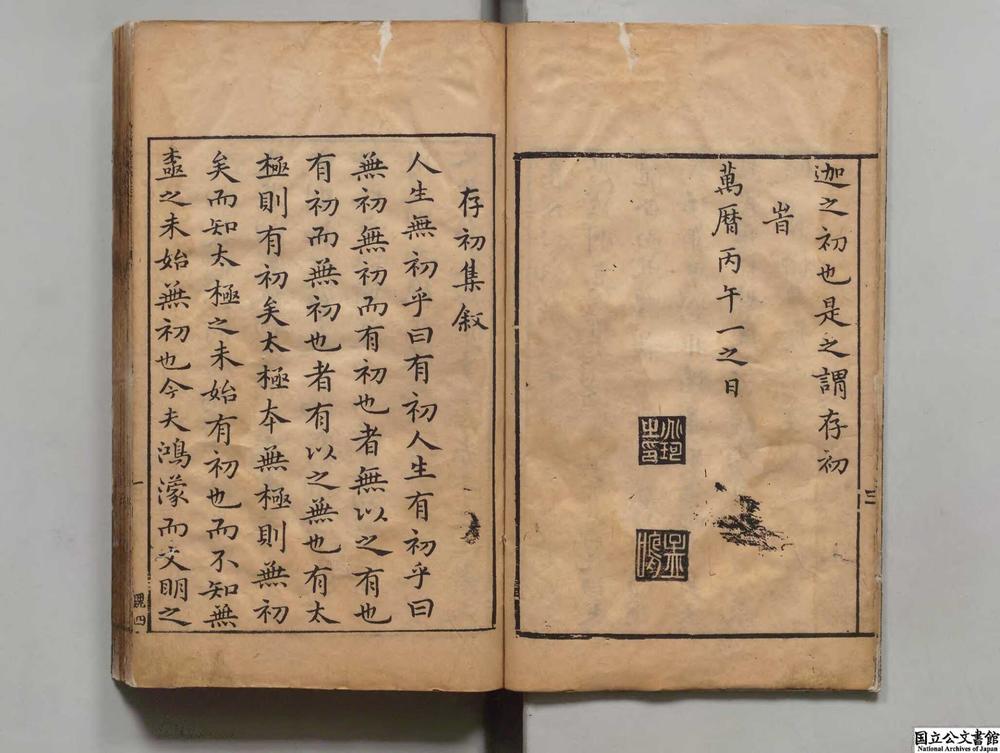 迦之初也是之謂存初
旹
萬曆丙午一之日
三
存初集叙
人生無初乎曰有初人生有初乎曰
無初無初而有初也者無以之有也
有初而無初也者有以之無也有太
極則有初矣太極本無極則無初
矣而知太極之未始有初也而不知無
極之未始無初也今夫鴻濛而文明之
一
国立公文書館
National Archives of Japan